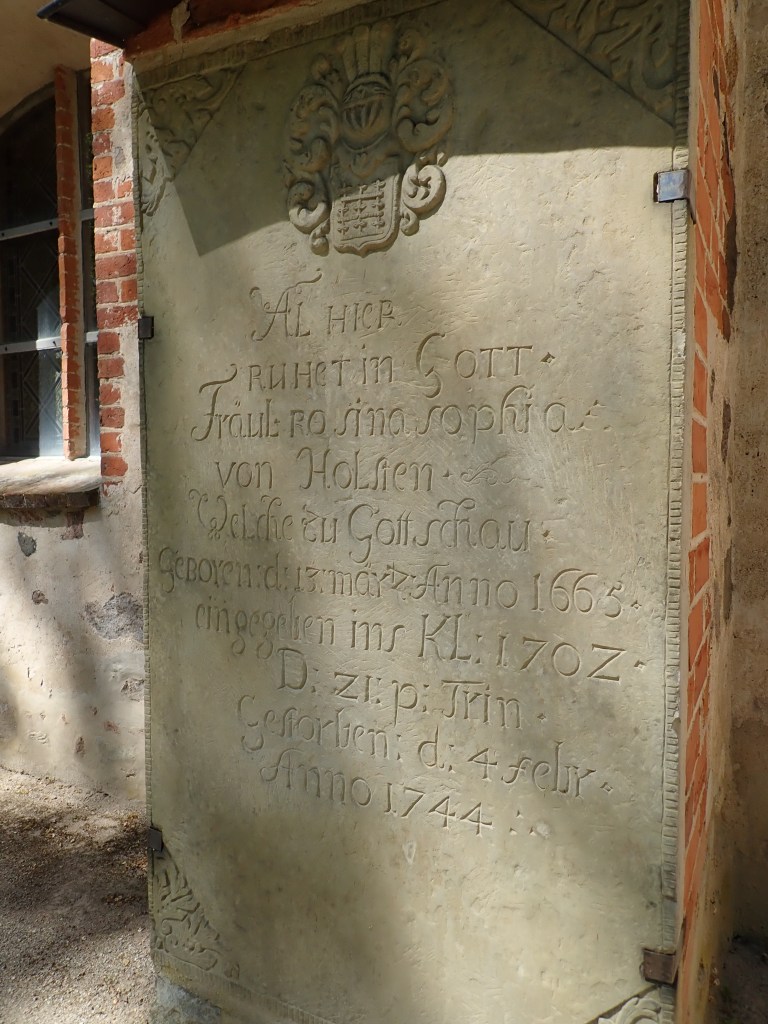 AL HIER
RUHET in GOTT.
Fräul: ROSina Sophia
von Holsten
Welche zu Gottschau
GeBoren: d: 13: märtz Anno 1665.
eingegeben ins KL: 1702.
D: 21: p: Trin.
Gestorben: d: 4 febr.
Anno 1744